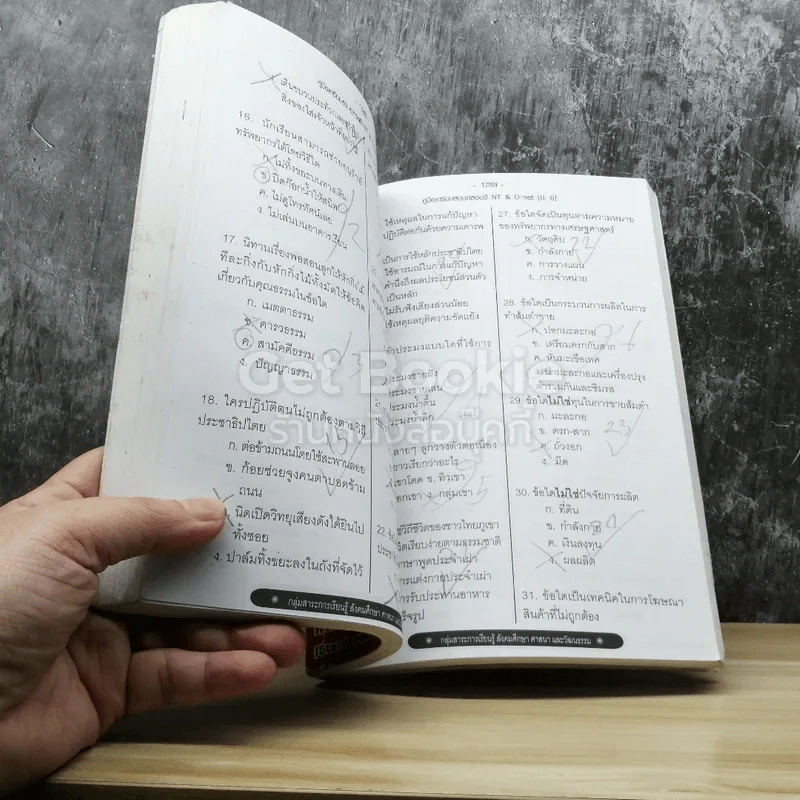 สิ่งของใส่เจ้าหน้าที่
16. นักเรียนสามารถช่วยอนุรักษ์
ทรัพยากรได้โดยวิธีใด
ก. ไม่ทิ้งขยะบนทางเดิน
ข. ปิดก๊อกน้ำให้สนิท
ค. ไม่ดูโทรทัศน์เลย
ง. ไม่เล่นบนอาคารเรียน
17. นิทานเรื่องพ่อสอนลูกให้หักกิ่งไม้
ทีละกิ่งกับหักกิ่งไม้ทั้งมัดให้ข้อคิด
เกี่ยวกับคุณธรรมในข้อใด
ก. เมตตาธรรม
ข. คารวธรรม
ค. สามัคคีธรรม
ง. ปัญญาธรรม
18. ใครปฏิบัติตนไม่ถูกต้องตามวิถี
ประชาธิปไตย
ก. ต่อข้ามถนนโดยใช้สะพานลอย
ข. ก้อยช่วยจูงคนตาบอดข้าม
ถนน
นิดเปิดวิทยุเสียงดังได้ยินไป
ทั้งซอย
ง. ปาล์มทิ้งขยะลงในถังที่จัดไว้
กลุ่มสาระการเรียนรู้ สังคมศึกษา
คู่มือเตรียมสอบตลอดปี NT & O-net (ป. 6)
ใช้เหตุผลในการแก้ปัญหา
ปฏิบัติต่อกันด้วยความเคารพ
เป็นการใช้หลักประชาธิปไตย
ใช้อารมณ์ในการแก้ปัญหา
คำนึงถึงผลประโยชน์ส่วนตัว
เป็นหลัก
ไม่รับฟังเสียงส่วนน้อย
ใช้เหตุผลยุติความขัดแย้ง
ทำประมงแบบใดที่ใช้การ
ประมงชายฝั่ง
ประมงชายเลน
ประมงน้ำตื้น
ประมงน้ำลึก
ลายๆ ลูกวางตัวต่อเนื่อง
ยาวเรียกว่าอะไร
เขาโดด ข. ทิวเขา
อกเขา ง. กลุ่มเขา
22.
ชวิถีชีวิตของชาวไทยภูเขา
ชีวิตเรียบง่ายตามธรรมชาติ
ภาษาพูดประจำเผ่า
การแต่งกายประจำเผ่า
การรับประทานอาหาร
ร็จรูป
27. ข้อใดจัดเป็นทุนตามความหมาย
ของทรัพยากรทางเศรษฐศาสตร์
ก. วัตถุดิบ
ข. กำลังกาย
ค. การวางแผน
ง. การจำหน่าย
28. ข้อใดเป็นกระบวนการผลิตในการ
ทำส้มตำขาย
ก. ปลูกมะละกอ
ข. เตรียมครกกับสาก
ค. หั่นมะเขือเทศ
ง. นำมะละกอและเครื่องปรุง
ตำรวมกันและชิมรส
29. ข้อใดไม่ใช่ทุนในการขายส้มตำ
ก. มะละกอ
ข. ครก-สาก
ค. ถั่วงอก
ง. มีด
30. ข้อใดไม่ใช่ปัจจัยการผลิต
ก. ที่ดิน
ข. กำลังกาย
ค. เงินลงทุน
ง. ผลผลิต
31. ข้อใดเป็นเทคนิคในการโฆษณา
สินค้าที่ไม่ถูกต้อง
กลุ่มสาระการเรียนรู้ สังคมศึกษา ศาสนา และวัฒนธรรม
Get Bookie
ร้านหนังสือบุ๊คกี้